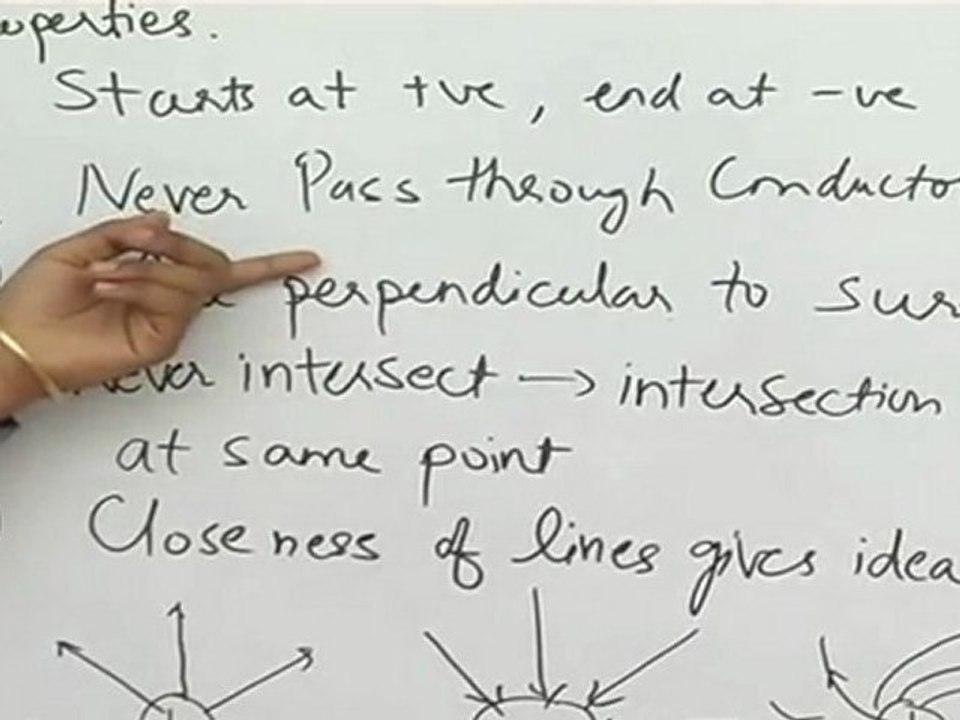 Starts at +ve, end at -ve
Never Pass through
perpendicular to
never intersect → intersection
at same point
Closeness of lines gives idea